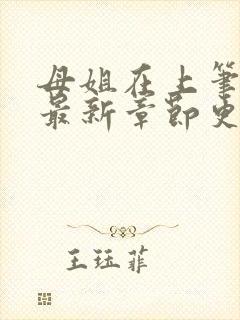 母姐在上笔
最新章节史
王珏菲